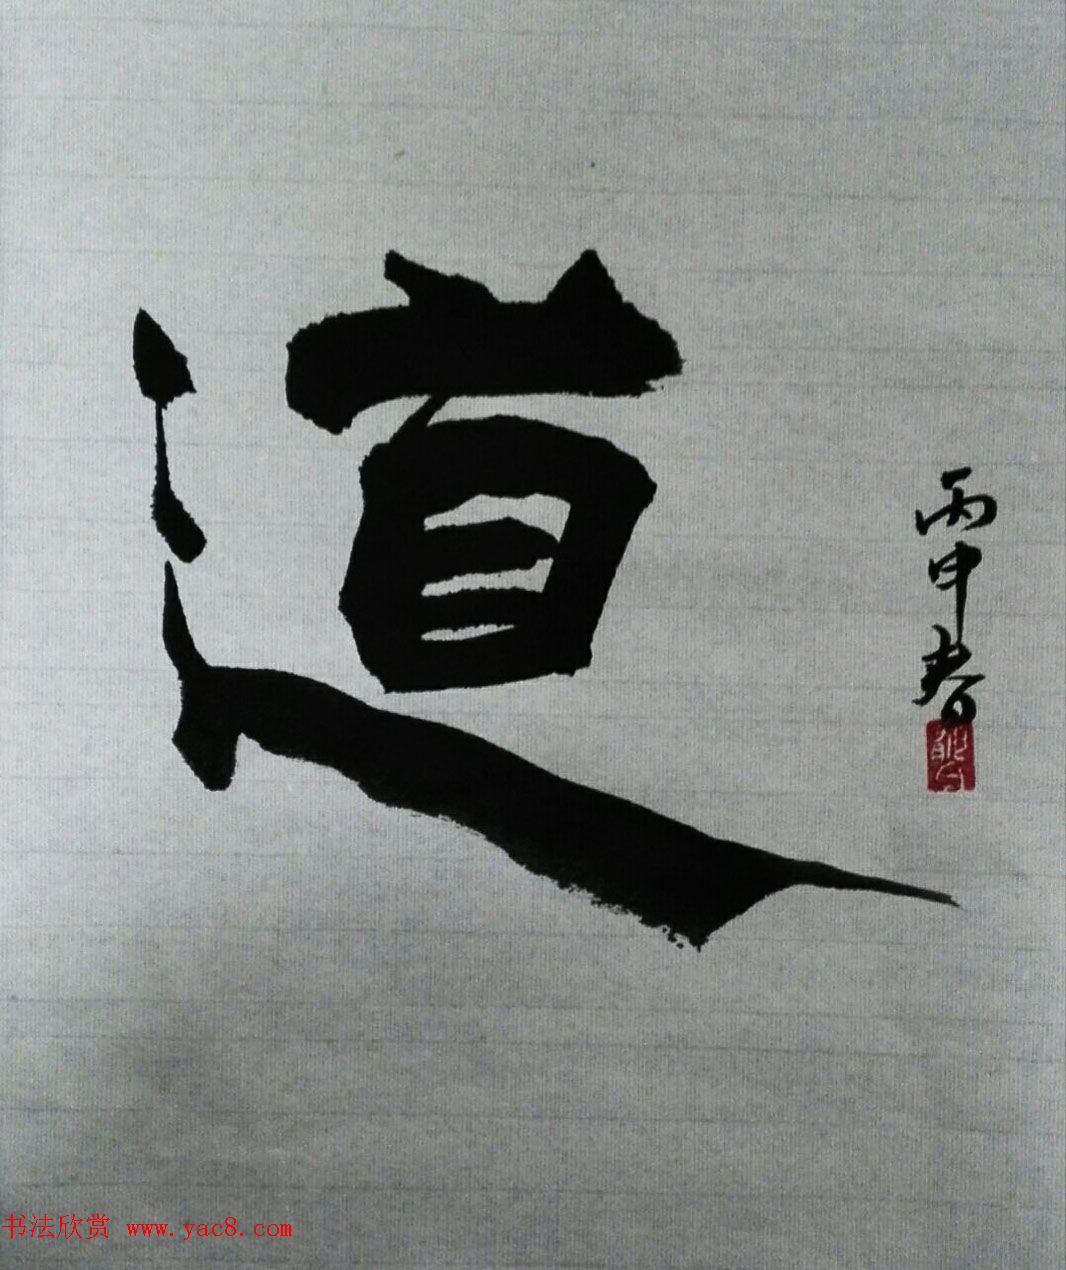 道
丙申春
书法欣赏 www.yac8.com